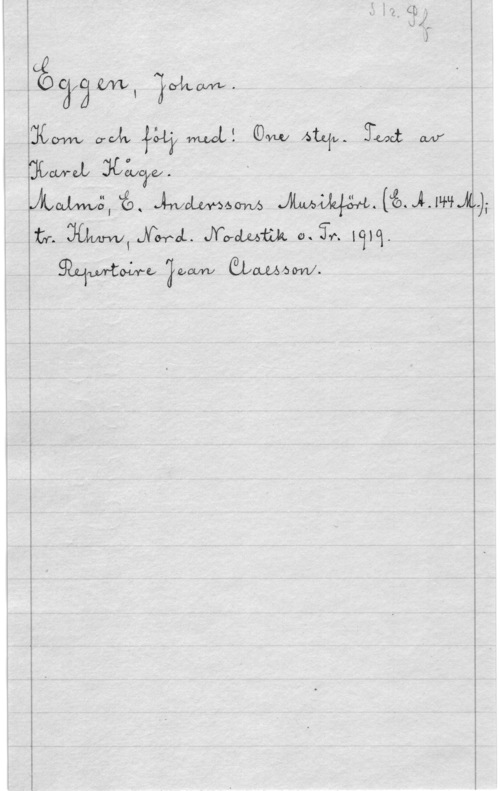 S 12. Pf
Eggen, Johan.
Kom och följ med! One step. Text av
Karel Kåge.
Malmö, E. Anderssons Musikförl. (E. A. 144 M.);
tr. Khvn, Nord. Nodestik o. Tr. 1919.
Repertoire Jean Claesson.